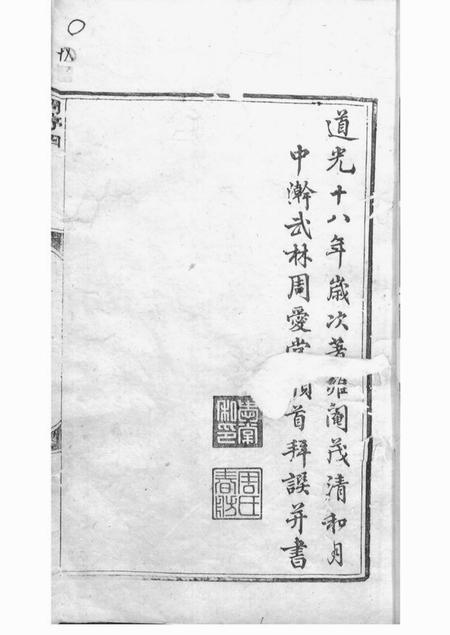 道光十八年歲次著雍閹茂清和月
中澣武林周愛棠頓首拜譔并書
私印
周氏